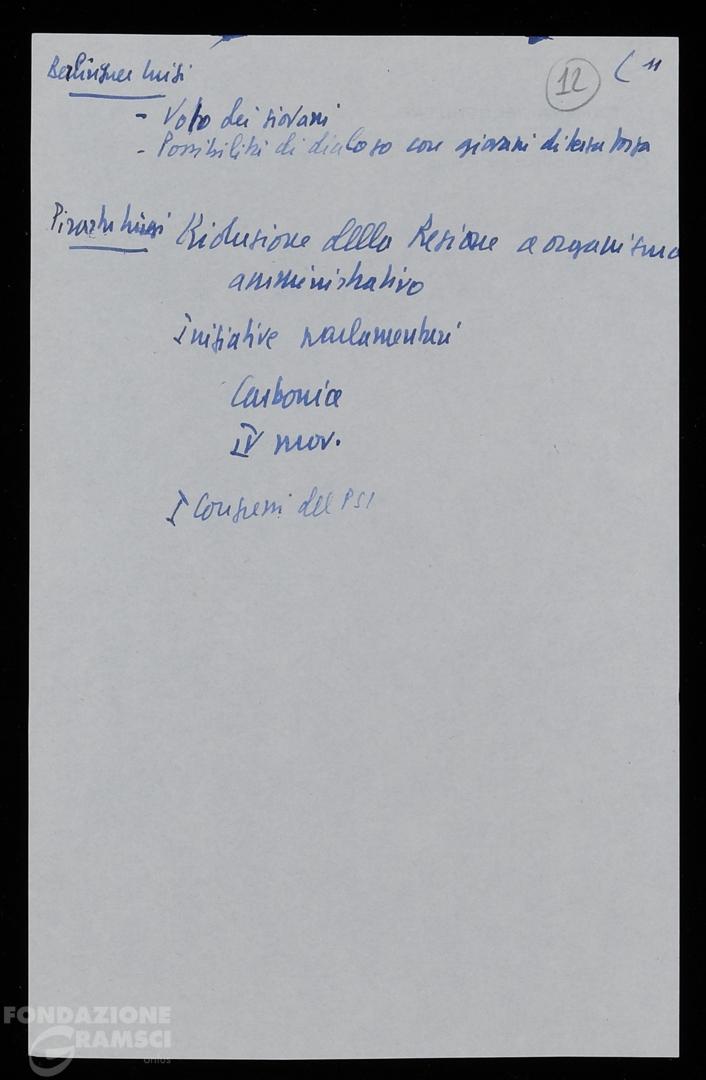 12
( 11
Berlinguer Luigi
- Voto dei giovani
- Possibilità di dialogo con giovani di terza forza
Pirastu Luigi Riduzione della Regione a organismo
amministrativo
Iniziative parlamentari
Carbonia
IV mov.
I Congressi del PSI
FONDAZIONE
GRAMSCI
onlus